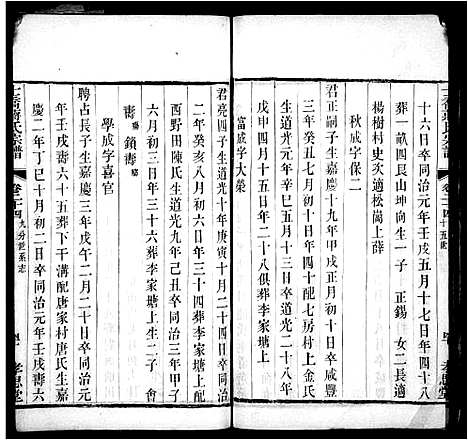 十六日卒同治元年壬戌五月十七日年四十八
葬一畝四艮山坤向生一子 正錫 女二長適
楊樹村史次適松崗上薛
秋成字保二
君正嗣子生嘉慶十九年甲戌正月初十日卒咸豐
三年癸丑七月初十日年四十配七房村上金氏
生嘉慶二十年乙亥十一月十三日卒道光二十八年
戊申四月十五日年二十八俱葬李家塘上
富成字大榮
君亮四子生道光十年庚寅十月二十四日卒同治
二年癸亥八月初六日年三十四葬李家塘上配
西野田陳氏生道光九年己丑卒同治三年甲子
六月初三日年三十六葬李家塘上生二子 會
壽 鎖壽
學成字喜官
聘占長子生嘉慶三年戊午二月二十日卒同治元
年壬戌壽六十五葬下干溝配唐家村唐氏生嘉
慶二年丁巳十月初二日卒同治元年壬戌壽六
氏宗譜
卷二十四 九分世系志
孝思堂